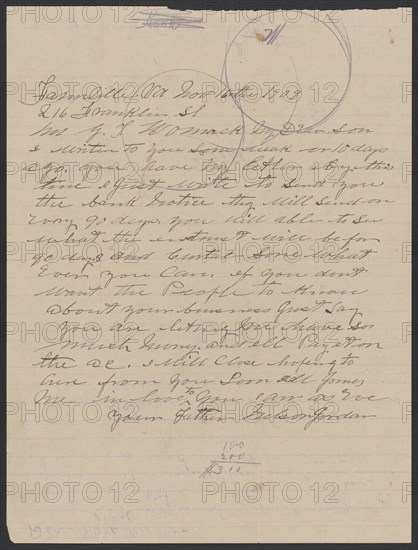 Book
Farmville Va Nov 16th 1909
216 Franklin St
Mr G. T Womack My Dear Son
I writen to you Some weak or 10 days
ago. you have my letter by this
time I Just write to send you
the bank Notice they Will send on
Every 90 days. you Will able to see
What the will be for
90 days and Curtail Some What
Ever you Can. if you dont
Want the People to Know
about your business Just Say
you are letting Joe have so
much money and Ell Pay it on
the ac. I Will Close hoping to
hear from you Soon all Joines
Me in love to you I am as Eve
your Father Nelson Jordan
100
200
$ 3 00